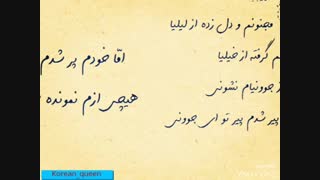 مجنونم و دل زده از لیلیا
م گرفته از خیلیا
جوونیام نشونی
پیر شدم پیر تو ای جوونی
امّا خودم پر شدم
هیچی ازم نمونده
Korean queen